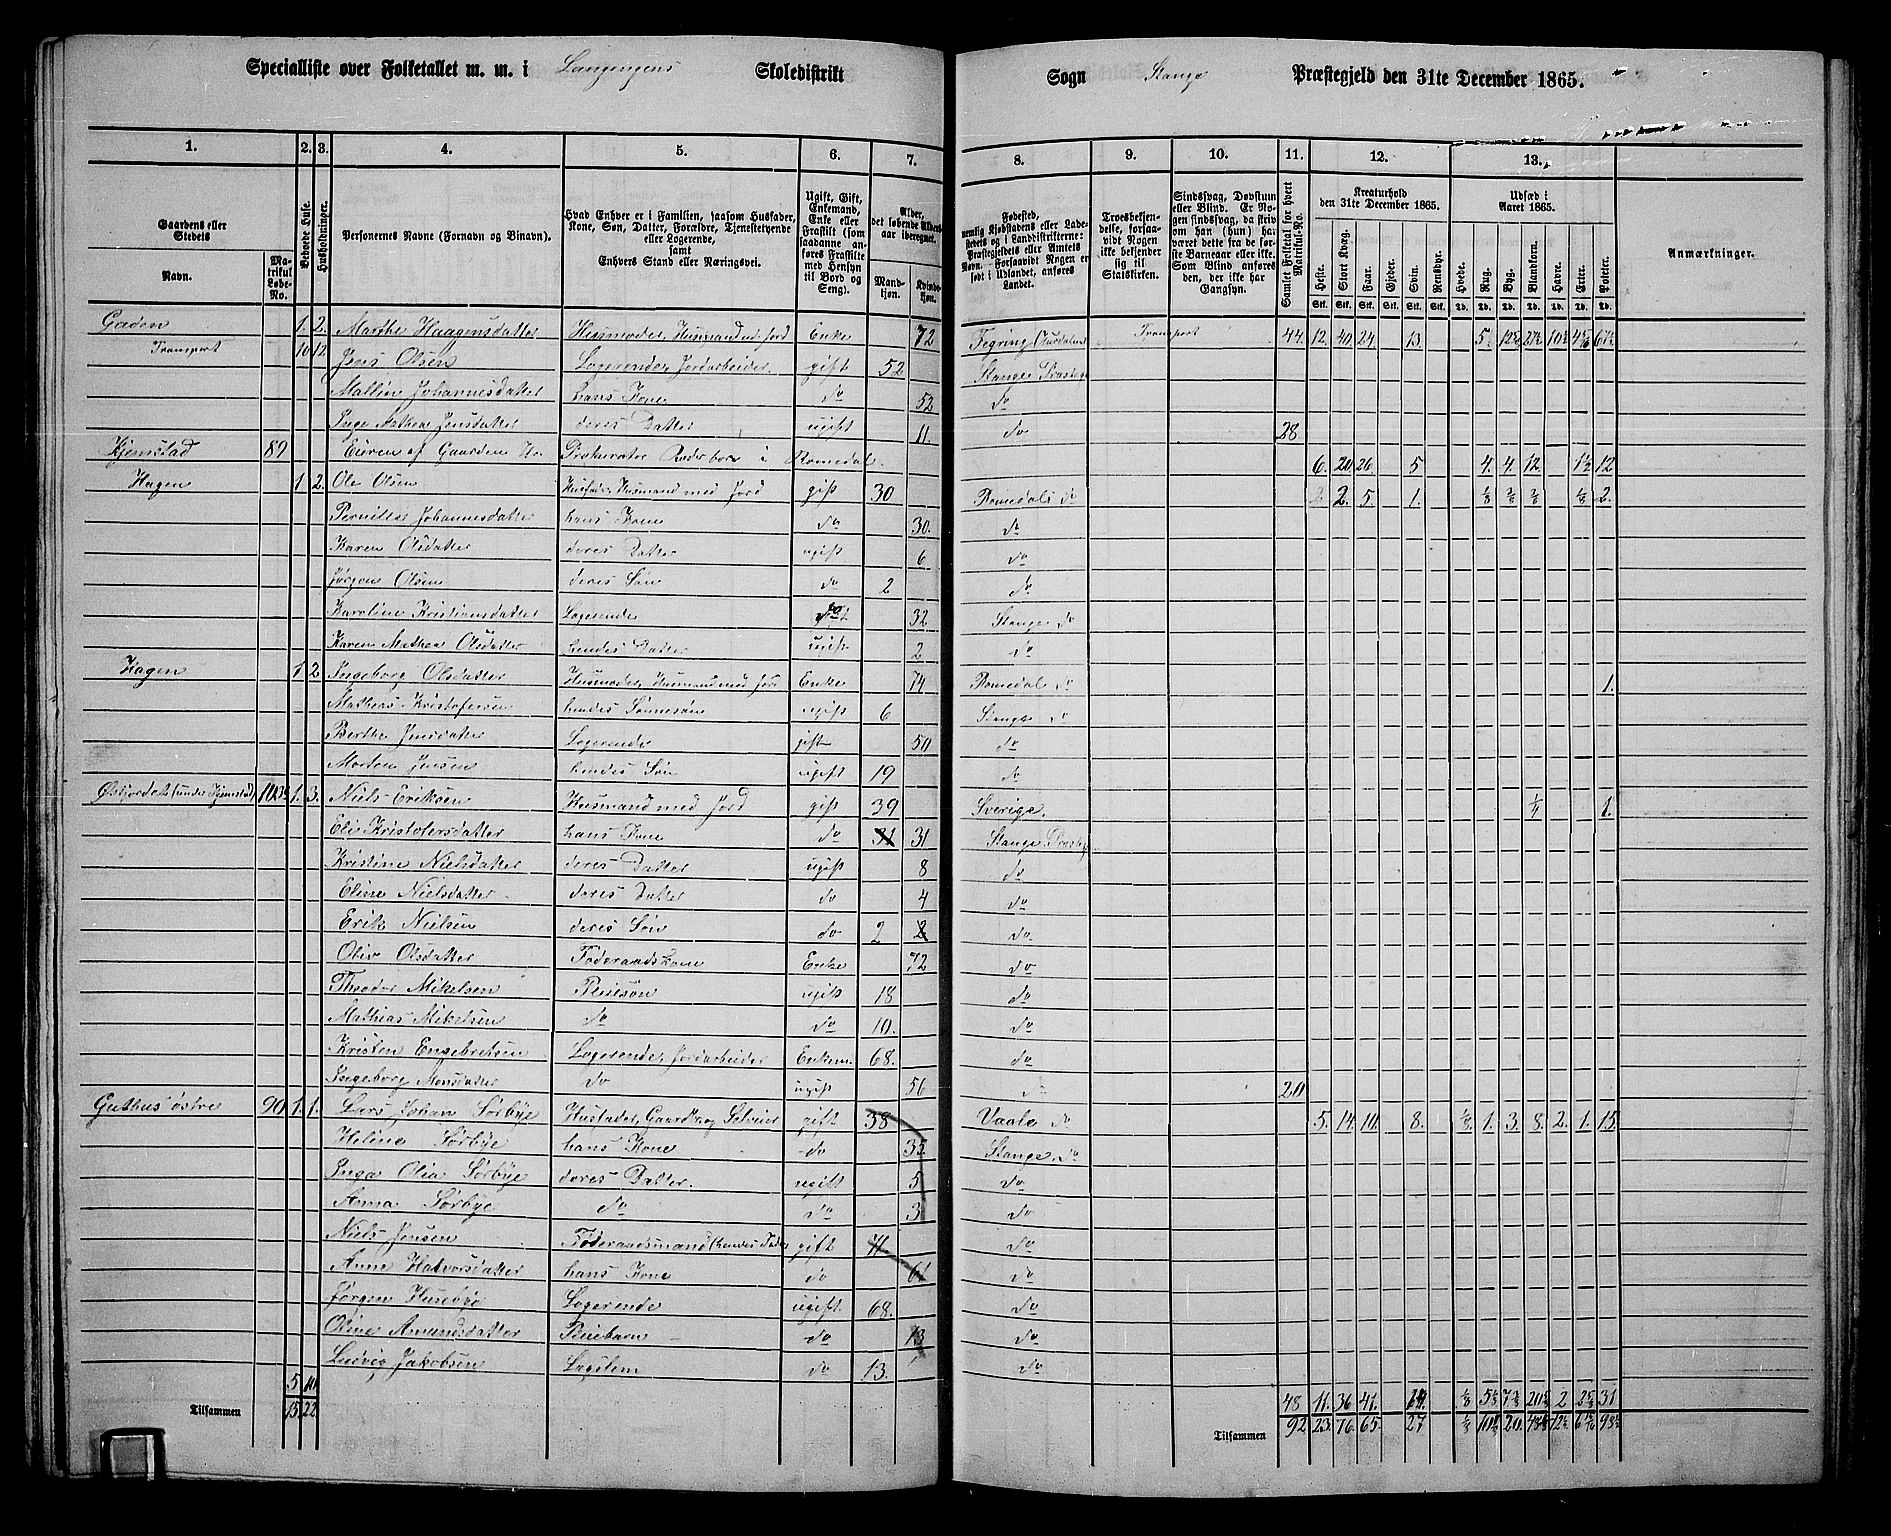 Specialliste over Folketallet m. m. i Langengens Skoledistrikt
Sogn Stange Præstegjeld den 31te December 1865.
1. 2. 3. 4. 5. 6. 7. 8. 9. 10. 11. 12. 13.
Gaardens eller Stedets
Navn.
Matrikul Løbe-No.
Beboede Huse.
Husholdninger.
Personernes Navne (Fornavn og Binavn).
Hvad Enhver er i Familien, saasom Husfader, Kone, Søn, Datter, Forældre, Tjenestetyende eller Logerende, samt Enhvers Stand eller Næringsvei.
Ugift, Gift, Enkemand, Enke eller Fraskilt (som saadanne anføres Fraskilte med Hensyn til Bord og Seng).
Alder, det løbende Alders-aar iberegnet.
Mandkjøn.
Kvindekjøn.
Fødested, nemlig Kjøbstadens eller Ladestedets og i Landdistrikterne Præstegjeldets eller Amtets Navn. Forsaavidt Nogen er født i Udlandet, anføres Landet.
Troesbekjendelse, forsaavidt Nogen ikke bekjender sig til Statskirken.
Sindssvag, Døvstum eller Blind. Er Nogen sindssvag, da skriv om han (hun) har været dette fra de første Barneaar eller ikke. Som Blind anføres den, der ikke har Gangsyn.
Samlet Folketal for hvert Matrikul-No.
Kreaturhold den 31te December 1865.
Heste. Stort Kvæg. Faar. Gjeder. Svin. Rensdyr.
Udsæd i Aaret 1865.
Hvede. Rug. Byg. Blandkorn. Havre. Erter. Poteter.
Anmærkninger.
Gaden 1. 2. Marthe Haagensdatter Husmoder, Husmand ud. Jord Enke 72 Transport 44. 12. 40. 24. 13.
Transport 10 12 Jens Olsen Logerende, Jordarbeider. gift 52 Stange Præsteg
Mallin Johannesdatter hans Kone do 52 do
Inge Mathea Jensdatter deres Datter ugift 11. do 28
Kjemstad 89 Eieren af Gaarden Prokurator i Romedal. 6. 20 26. 5 4. 4. 12 1½ 12
Hagen 1 2. Ole Olsen Husfader, Husmand med Jord gift 30 Romedals do 2. 5. 1. 2.
Pernille Johannesdatter hans Kone do 30. do
Karen Olsdatter deres Datter ugift 6 do
Jørgen Olsen deres Søn do 2 do
Karoline Kristiansdatter Logerende do 32 Stange do
Karen Mathea Olsdatter hendes Datter ugift 2 do
Hagen 1 2 Ingeborg Olsdatter Husmoder, Husmand med Jord Enke 74 Romedal do 1.
Mathias Kristofersen hendes Sønnesøn ugift 6 Stange do
Berthe Jensdatter Logerende gift 50 do
Morten Jensen hendes Søn ugift 19 do
(under Kjemstad) 1. 3. Niels Eriksen Husmand med Jord gift 39 Sverige. ¼ 1.
Eli Kristofersdatter hans Kone do 31 Stange Præsteg
Kristine Nielsdatter deres Datter ugift 8 do
Eline Nielsdatter deres Datter do 4 do
Erik Nielsen deres Søn do 2 do
Oliv Olsdatter Føderaadskone Enke 72 do
Theodor Mikelsen Pleiesøn ugift 18 do
Mathias Mikelsen do do 10. do
Kristen Engebretsen Logerende, Jordarbeider Enkem. 68. do
Ingeborg Monsdatter do ugift 56 do 20
Guthus østre 90 1. 1. Lars Johan Sørbye Husfader, Gaardbr. og Selveier gift 38 Vaale do 5. 14. 10. 8. 1. 3. 8. 2. 1. 15.
Helene Sørbye hans Kone do 35. Stange. do
Inga Olia Sørbye deres Datter. ugift 5 do
Anna Sørbye do do 3 do
Niels Jensen Føderaadsmand (hendes Fader gift 71 do
Anne Halvorsdatter hans Kone do 61 do
Jørgen Husebye Logerende ugift 68. do
Oline Amundsdatter Pleiebarn do 13 do
Ludvig Jakobsen Lægslem do 13. do
5 10 48 11. 36 41. 14. 2 31
Tilsammen 15 22 Tilsammen 92 23. 76. 65. 27